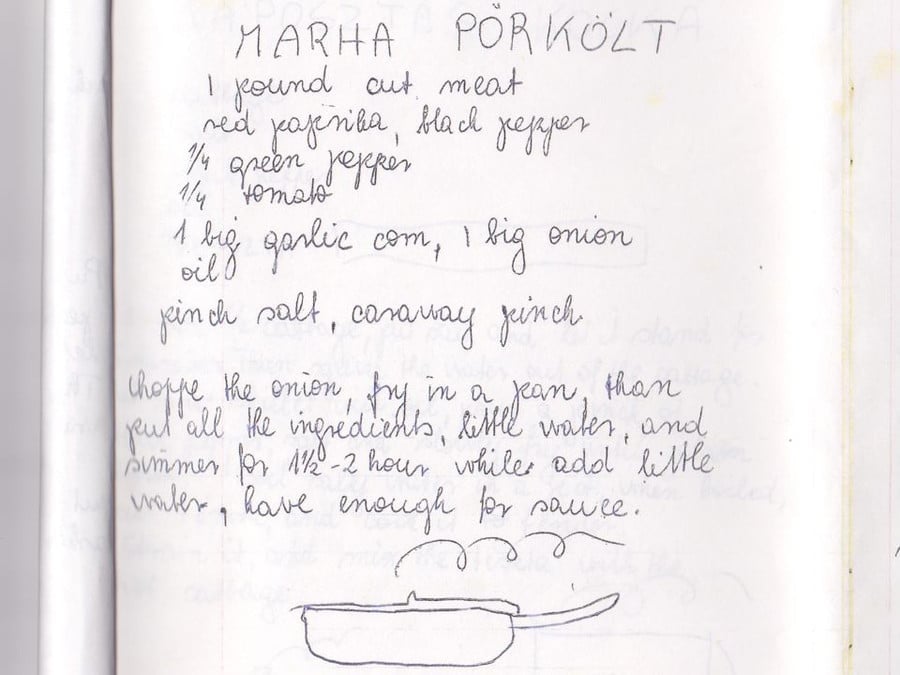 MARHA PÖRKÖLT
1 pound cut meat
red paprika, black pepper
1/4 green pepper
1/4 tomato
1 big garlic com, 1 big onion
oil
pinch salt, caraway pinch.
choppe the onion, fry in a pan, than
put all the ingredients, little water, and
simmer for 1½-2 hour while add little
water, have enough for sauce.